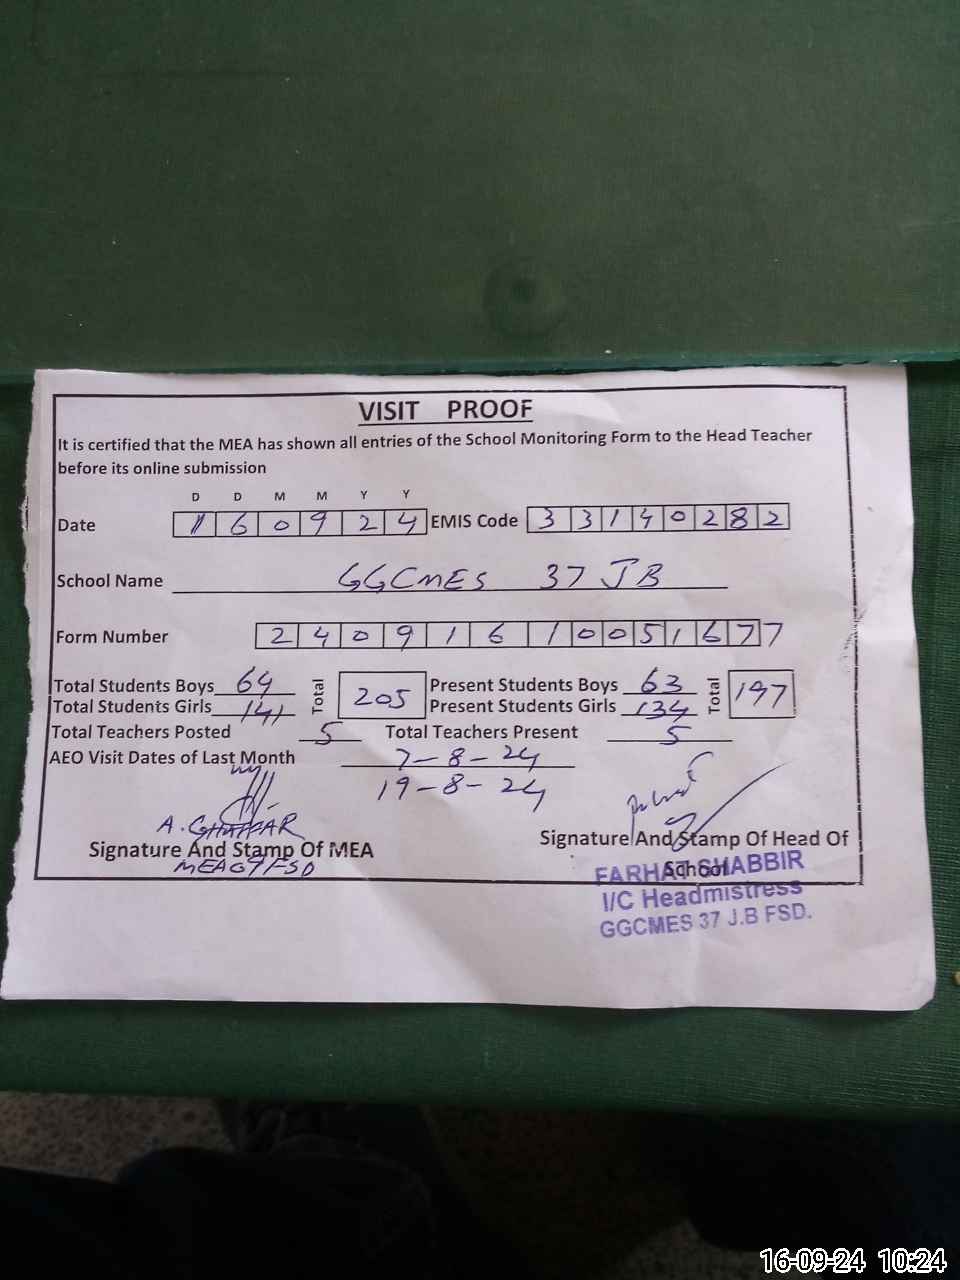 VISIT PROOF
It is certified that the MEA has shown all entries of the School Monitoring Form to the Head Teacher
before its online submission
D D M M Y Y
Date 1 6 0 9 2 4 EMIS Code 3 3 1 4 0 2 8 2
School Name GGCMES 37 JB
Form Number 2 4 0 9 1 6 1 0 0 5 1 6 7 7
Total Students Boys 64 Total 205 Present Students Boys 63 Total 197
Total Students Girls 141 Present Students Girls 134
Total Teachers Posted 5 Total Teachers Present 5
AEO Visit Dates of Last Month 7-8-24
19-8-24
A. GHAFFAR
Signature And Stamp Of MEA Signature And Stamp Of Head Of
School
FARHAT SHABBIR
I/C Headmistress
GGCMES 37 J.B FSD.
16-09-24 10:24